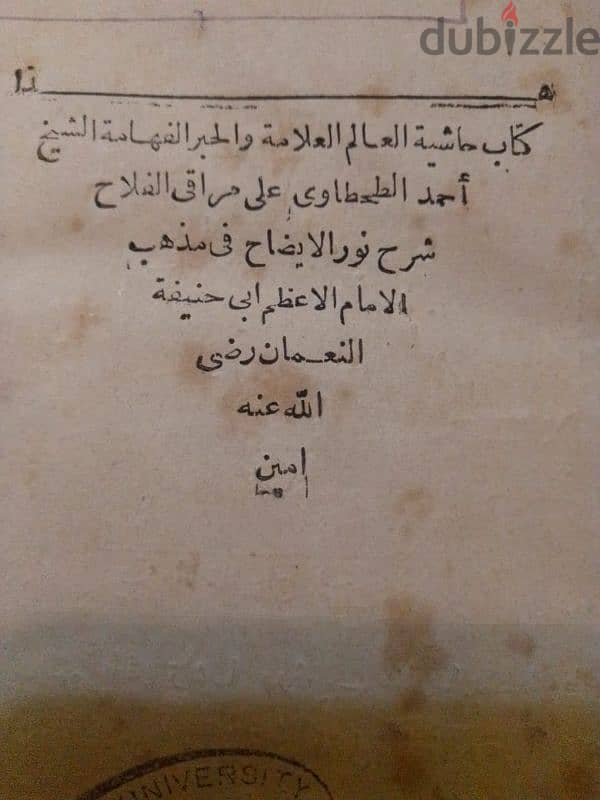 dubizzle
هذا
كتاب حاشية العالم العلامة والحبر الفهامة الشيخ
أحمد الطحطاوى على مراقى الفلاح
شرح نور الايضاح فى مذهب
الامام الاعظم ابى حنيفة
النعمان رضى
الله عنه
امين
UNIVERSITY